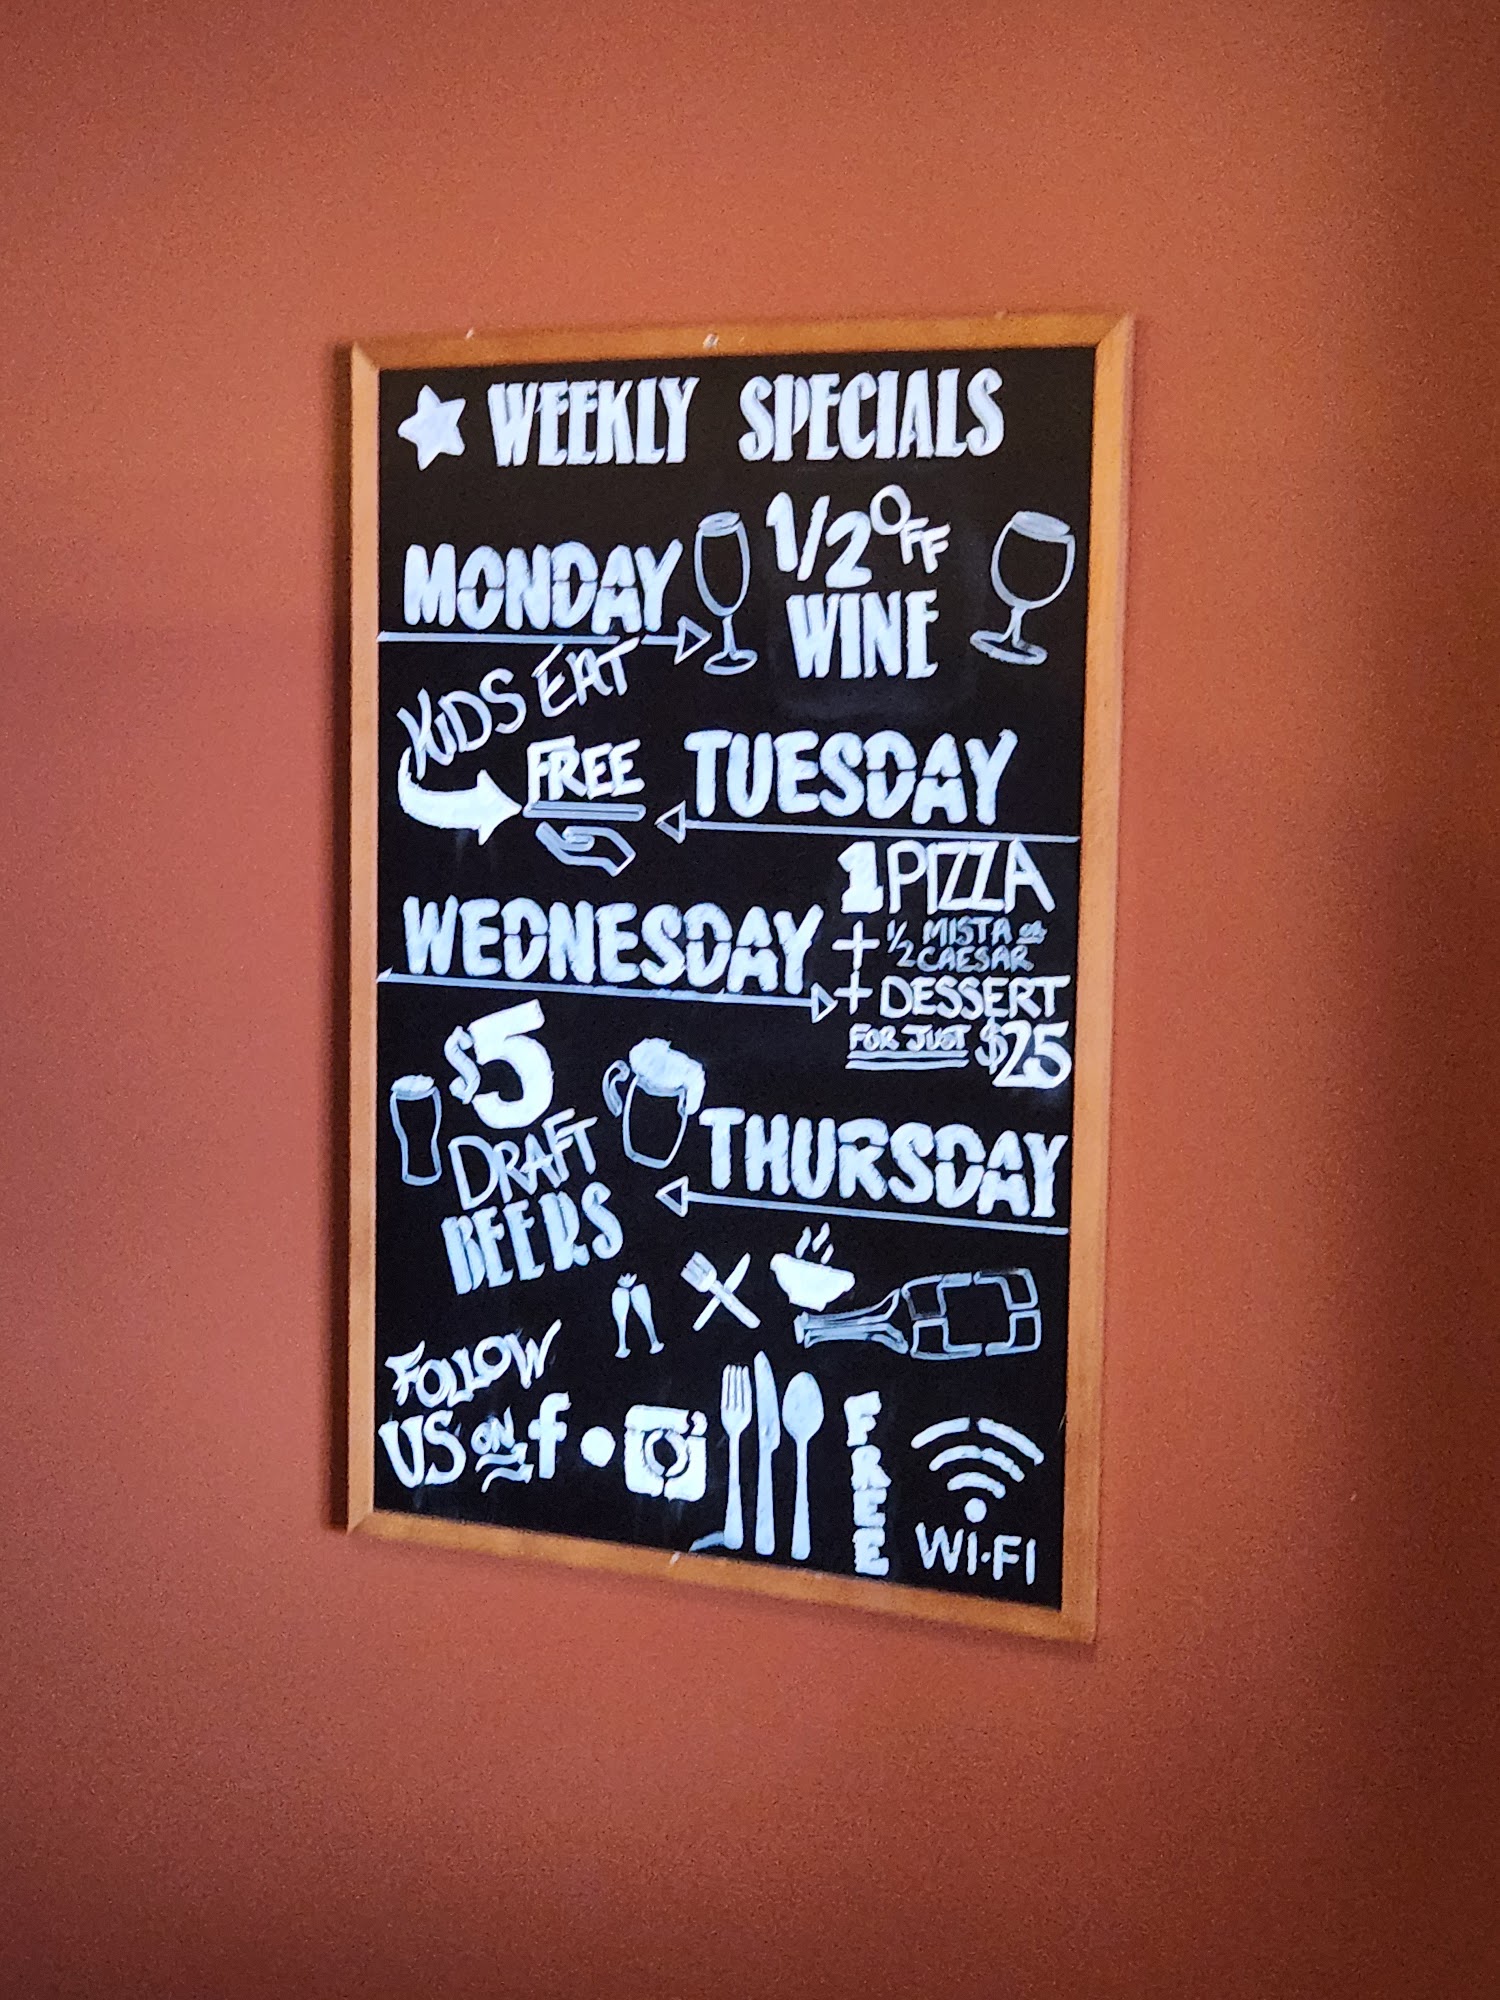 WEEKLY SPECIALS
MONDAY
1/2 OFF
WINE
KIDS EAT
FREE
TUESDAY
WEDNESDAY
1 PIZZA
+ 1/2 MISTA OR
CAESAR
+ DESSERT
FOR JUST $25
$5
DRAFT
BEERS
THURSDAY
FOLLOW
US ON f
FREE
WI-FI